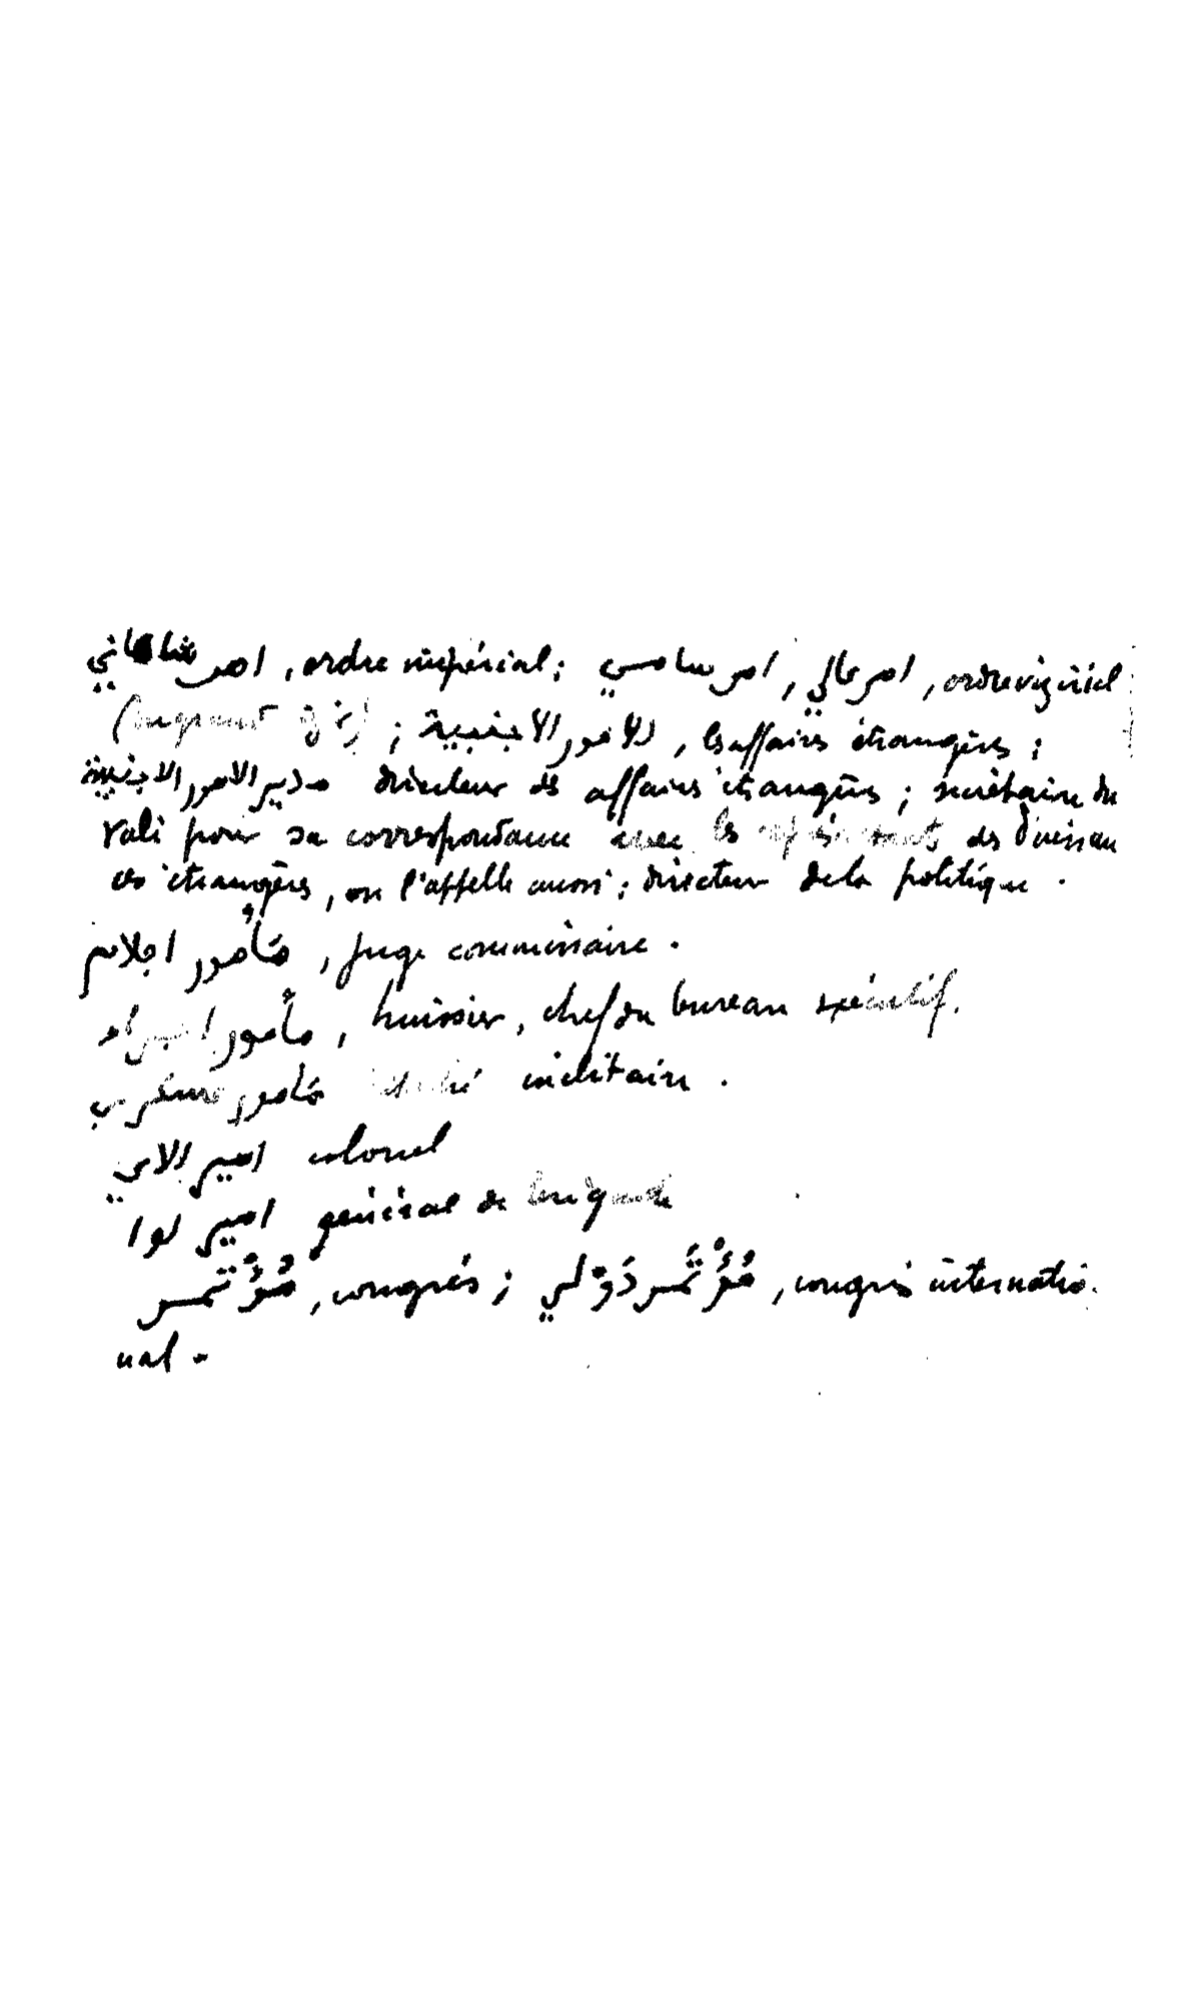 امر شاهاني, ordre impérial; امر سامي, امر عالي, ordre viziriel
; الامور الاجنبية, les affaires étrangères;
مدير الامور الاجنبية directeur des affaires étrangères; secrétaire du
Vali pour sa correspondance avec les des Puissan
ces étrangères, on l'appelle aussi: directeur de la politique.
مَأمور, juge commissaire.
مأمور اجراء, huissier, chef du bureau exécutif.
مَامور عسكري attaché militaire.
امير الاي colonel
امير لوا général de brigade
مُؤْتمر, congrès; مُؤْتَمر دَوْلي, congrès internatio-
nal.